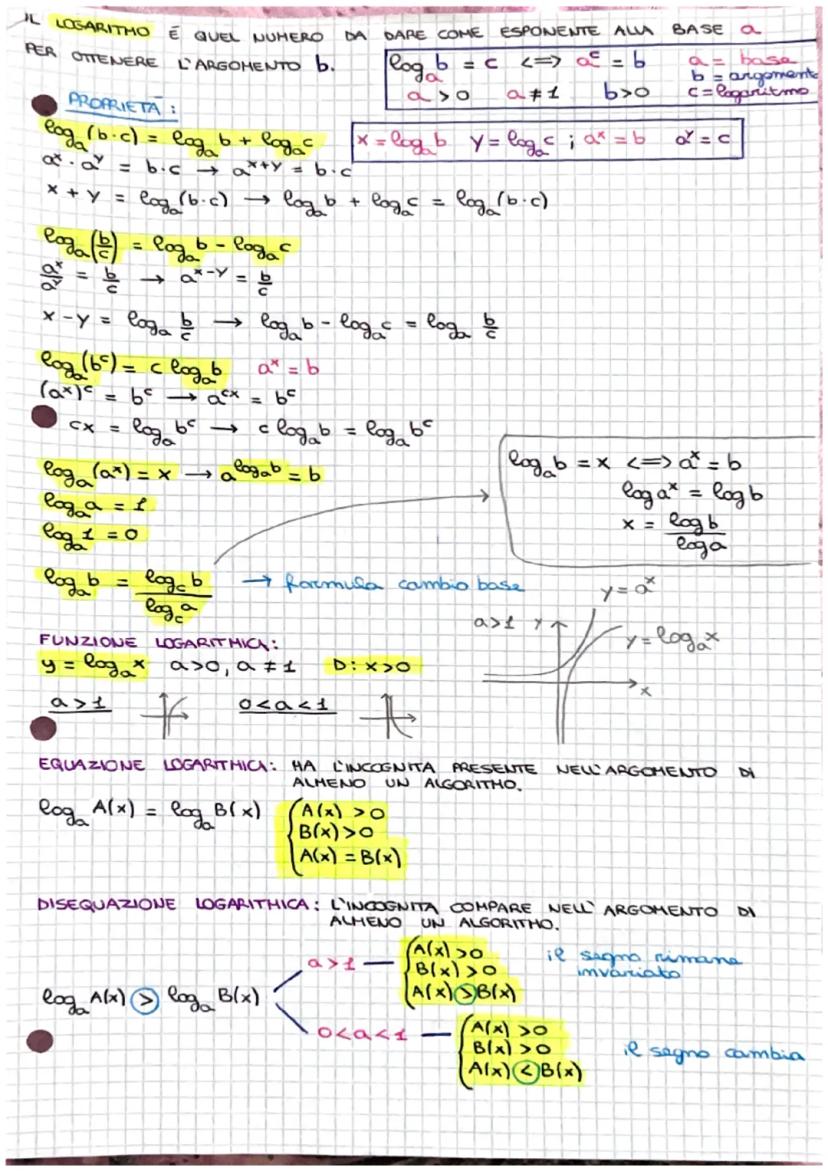 IL LOGARITMO È QUEL NUMERO DA DARE COME ESPONENTE ALLA BASE a
PER OTTENERE L'ARGOMENTO b.
logₐ b = c <=> aᶜ = b
a > 0 a ≠ 1 b > 0
a = base
b = argomento
c = logaritmo
PROPRIETÀ:
logₐ (b·c) = logₐ b + logₐ c
x = logₐ b y = logₐ c ; aˣ = b aʸ = c
aˣ · aʸ = b·c → aˣ⁺ʸ = b·c
x + y = logₐ (b·c) → logₐ b + logₐ c = logₐ (b·c)
logₐ (b/c) = logₐ b - logₐ c
aˣ/aʸ = b/c → aˣ⁻ʸ = b/c
x - y = logₐ b/c → logₐ b - logₐ c = logₐ b/c
logₐ (bᶜ) = c logₐ b aˣ = b
(aˣ)ᶜ = bᶜ → aᶜˣ = bᶜ
cx = logₐ bᶜ → c logₐ b = logₐ bᶜ
logₐ (aˣ) = x → a^(logₐ b) = b
logₐ a = 1
logₐ 1 = 0
logₐ b = x <=> aˣ = b
log aˣ = log b
x = log b / log a
logₐ b = log_c b / log_c a → formula cambio base
y = aˣ
a > 1 y
y = logₐ x
x
FUNZIONE LOGARITHICA:
y = logₐ x a > 0, a ≠ 1 D: x > 0
a > 1 0 < a < 1
EQUAZIONE LOGARITHICA: HA L'INCOGNITA PRESENTE NELL'ARGOMENTO DI
ALMENO UN ALGORITMO.
logₐ A(x) = logₐ B(x)
A(x) > 0
B(x) > 0
A(x) = B(x)
DISEQUAZIONE LOGARITHICA: L'INCOGNITA COMPARE NELL'ARGOMENTO DI
ALMENO UN ALGORITMO.
logₐ A(x) > logₐ B(x)
a > 1
A(x) > 0
B(x) > 0
A(x) > B(x)
il segno rimane
invariato
0 < a < 1
A(x) > 0
B(x) > 0
A(x) < B(x)
il segno cambia